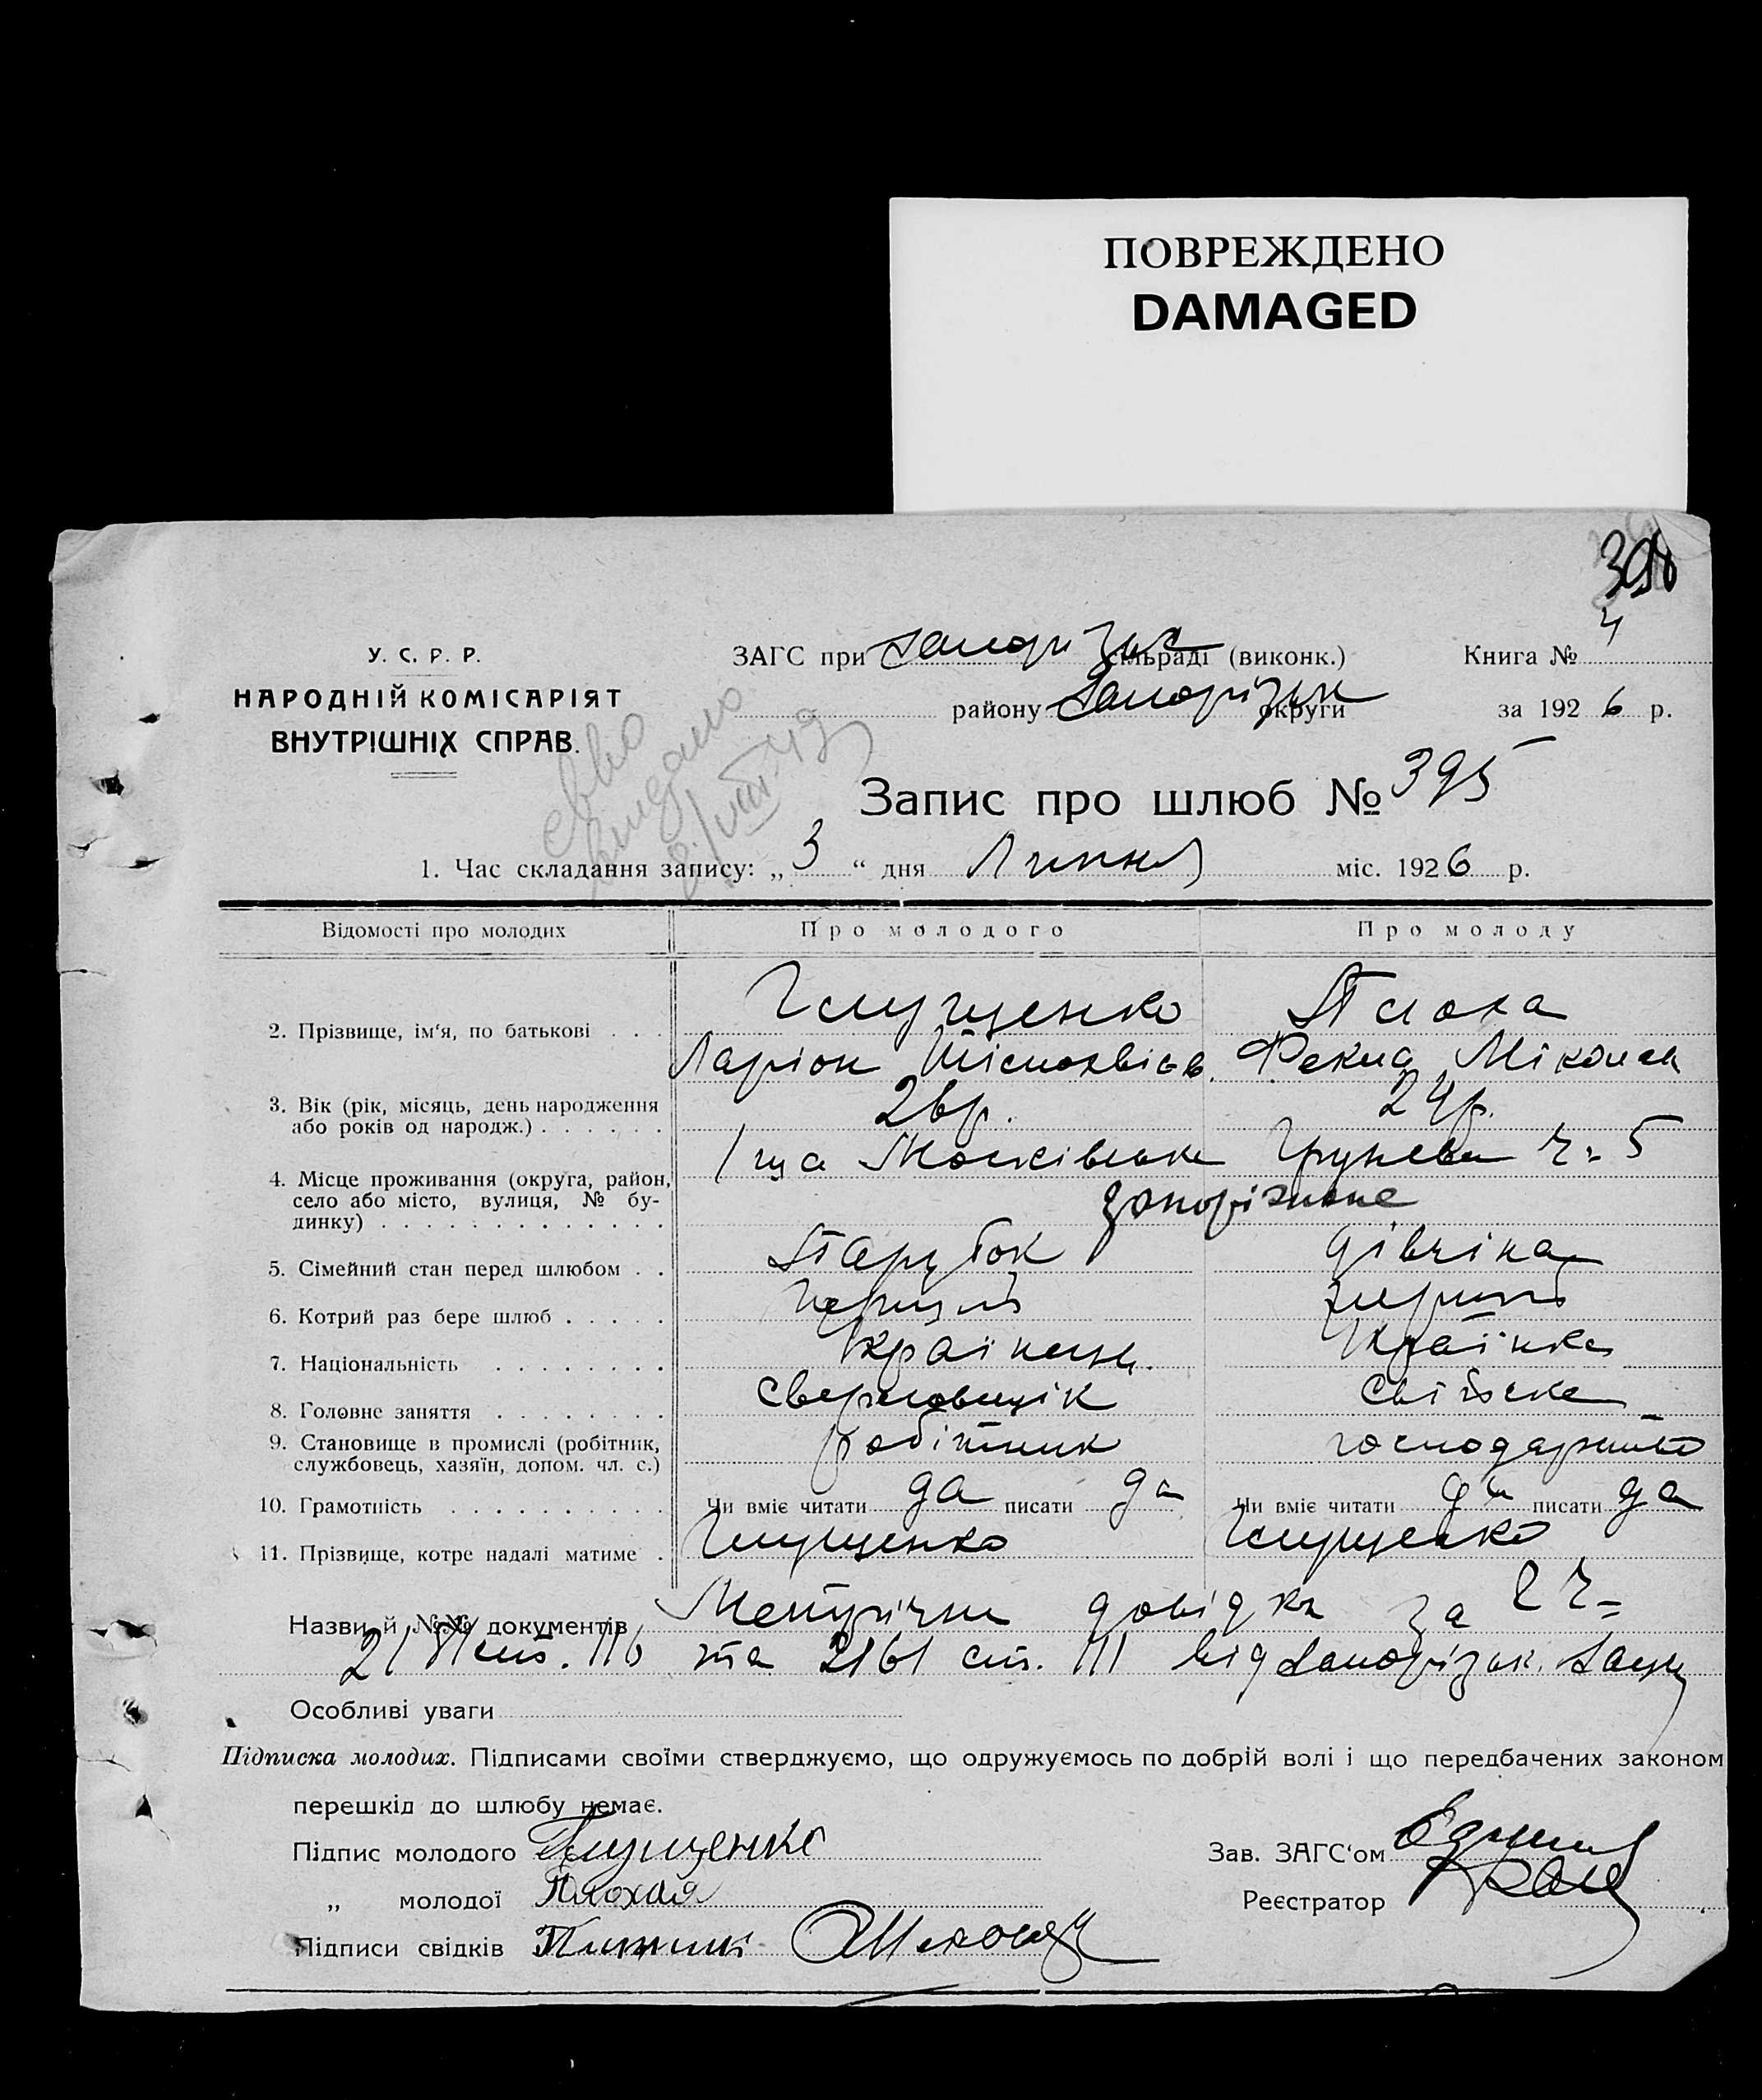 ПОВРЕЖДЕНО
DAMAGED
398
У. С. Р. Р.
НАРОДНІЙ КОМІСАРІЯТ
ВНУТРІШНІХ СПРАВ.
ЗАГС при Запоріжс сільраді (виконк.)
Книга № 4
району Запоріжж округи
за 1926 р.
видано
Запис про шлюб № 395
1. Час складання запису: „ 3 “ дня Липня міс. 1926 р.
Відомості про молодих
Про молодого
Про молоду
2. Прізвище, ім‘я, по батькові . . .
Глущенко
Ларіон
Плоха
Фекла Мікола
3. Вік (рік, місяць, день народження
або років од народж.) . . . . . .
26р.
24р.
4. Місце проживання (округа, район,
село або місто, вулиця, № бу-
динку) . . . . . . . . . . . . .
Московська
ч= 5
Запоріжжє
5. Сімейний стан перед шлюбом . .
Парубок
дівчіна
6. Котрий раз бере шлюб . . . . .
перший
перший
7. Національність . . . . . . . .
Українець
Українка
8. Головне заняття . . . . . . . .
сверловщік
свійске
9. Становище в промислі (робітник,
службовець, хазяїн, допом. чл. с.)
робітник
господарство
10. Грамотність . . . . . . . . . .
Чи вміє читати да писати да
Чи вміє читати да писати да
11. Прізвище, котре надалі матиме .
Глущенко
Глущенко
Назви й №№ документів Метрічни довідки за
ст. 116 та 2161 ст. 111 від Запоріжж. Загсу
Особливі уваги
Підписка молодих. Підписами своїми стверджуємо, що одружуємось по добрій волі і що передбачених законом
перешкід до шлюбу немає.
Підпис молодого Глущенко
Зав. ЗАГС‘ом
„ молодої Плохая
Реєстратор
Підписи свідків